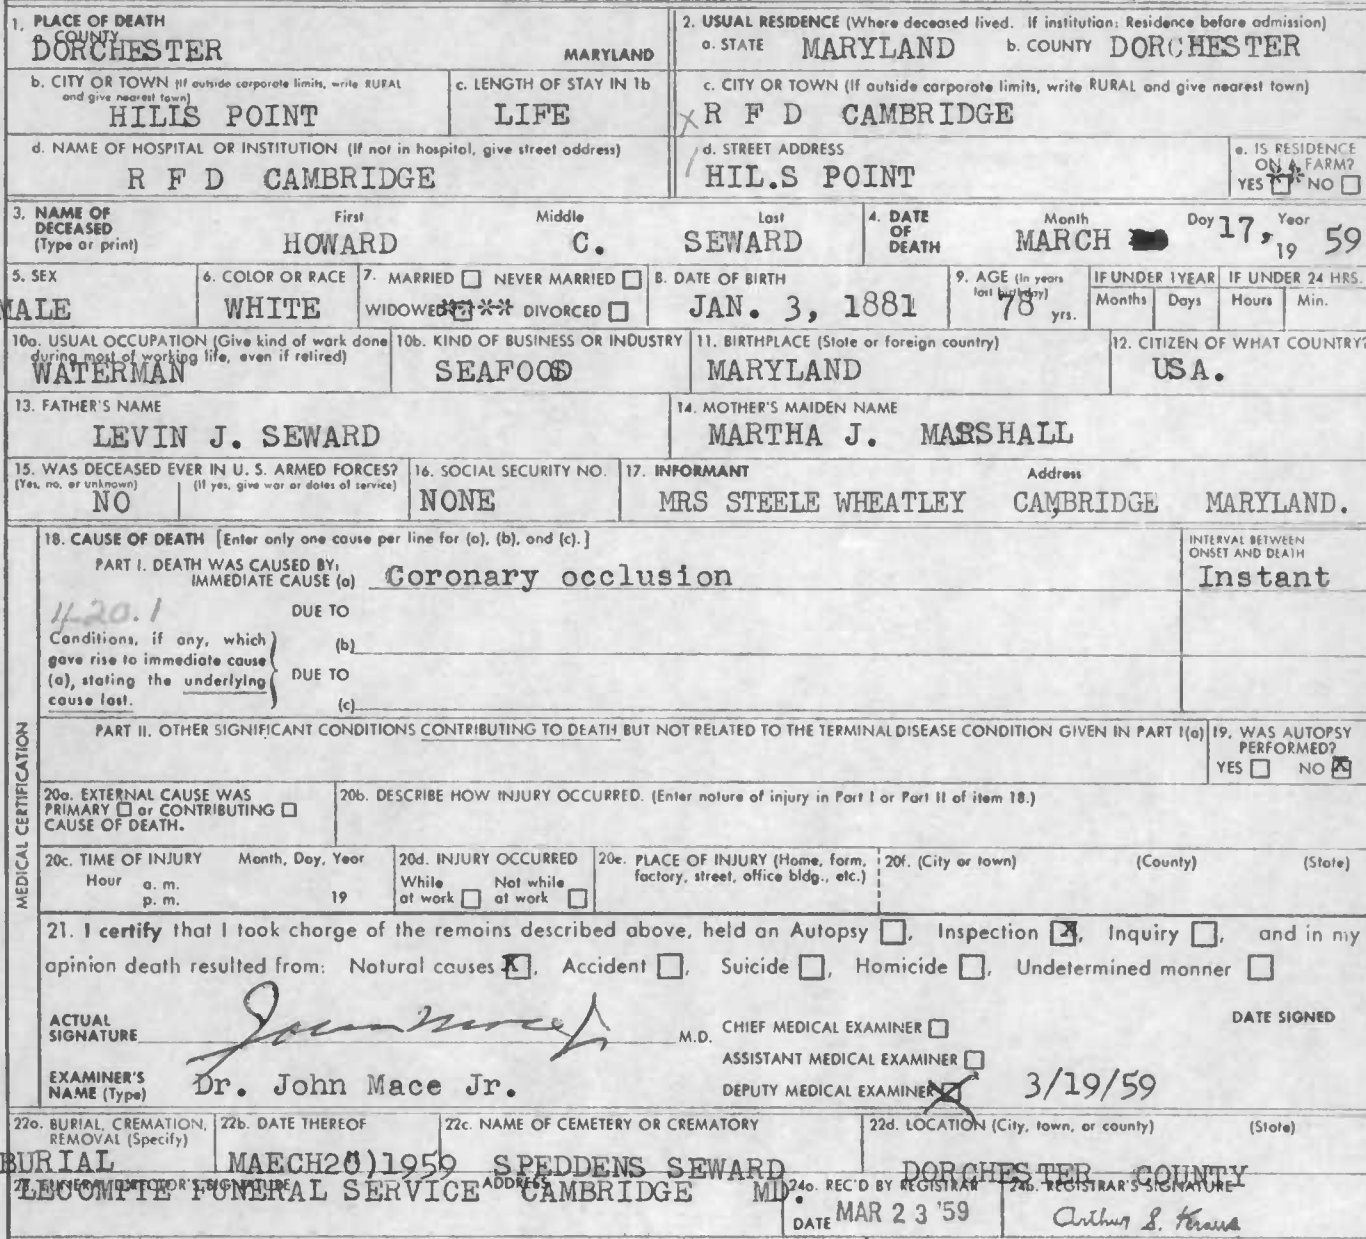 1. PLACE OF DEATH
a. COUNTY
DORCHESTER MARYLAND
2. USUAL RESIDENCE (Where deceased lived. If institution: Residence before admission)
a. STATE MARYLAND b. COUNTY DORCHESTER
b. CITY OR TOWN (If outside corporate limits, write RURAL and give nearest town)
HILLS POINT
c. LENGTH OF STAY IN 1b
LIFE
c. CITY OR TOWN (If outside corporate limits, write RURAL and give nearest town)
R F D CAMBRIDGE
d. NAME OF HOSPITAL OR INSTITUTION (If not in hospital, give street address)
R F D CAMBRIDGE
d. STREET ADDRESS
HIL.S POINT
e. IS RESIDENCE ON A FARM?
YES ** NO
3. NAME OF DECEASED (Type or print)
First Middle Last
HOWARD C. SEWARD
4. DATE OF DEATH
Month Day Year
MARCH 17, 19 59
5. SEX
MALE
6. COLOR OR RACE
WHITE
7. MARRIED NEVER MARRIED
WIDOWED *** DIVORCED
8. DATE OF BIRTH
JAN. 3, 1881
9. AGE (In years last birthday)
78 yrs.
IF UNDER 1 YEAR
Months Days
IF UNDER 24 HRS.
Hours Min.
10a. USUAL OCCUPATION (Give kind of work done during most of working life, even if retired)
WATERMAN
10b. KIND OF BUSINESS OR INDUSTRY
SEAFOOD
11. BIRTHPLACE (State or foreign country)
MARYLAND
12. CITIZEN OF WHAT COUNTRY?
USA.
13. FATHER'S NAME
LEVIN J. SEWARD
14. MOTHER'S MAIDEN NAME
MARTHA J. MARSHALL
15. WAS DECEASED EVER IN U. S. ARMED FORCES?
(Yes, no, or unknown) (If yes, give war or dates of service)
NO
16. SOCIAL SECURITY NO.
NONE
17. INFORMANT Address
MRS STEELE WHEATLEY CAMBRIDGE MARYLAND.
MEDICAL CERTIFICATION
18. CAUSE OF DEATH [Enter only one cause per line for (a), (b), and (c).]
PART I. DEATH WAS CAUSED BY:
IMMEDIATE CAUSE (a) Coronary occlusion
INTERVAL BETWEEN ONSET AND DEATH
Instant
420.1
DUE TO
Conditions, if any, which gave rise to immediate cause (a), stating the underlying cause last.
(b)
DUE TO
(c)
PART II. OTHER SIGNIFICANT CONDITIONS CONTRIBUTING TO DEATH BUT NOT RELATED TO THE TERMINAL DISEASE CONDITION GIVEN IN PART I(a)
19. WAS AUTOPSY PERFORMED?
YES NO X
20a. EXTERNAL CAUSE WAS
PRIMARY or CONTRIBUTING
CAUSE OF DEATH.
20b. DESCRIBE HOW INJURY OCCURRED. (Enter nature of injury in Part I or Part II of item 18.)
20c. TIME OF INJURY Month, Day, Year
Hour a. m.
p. m. 19
20d. INJURY OCCURRED
While at work Not while at work
20e. PLACE OF INJURY (Home, farm, factory, street, office bldg., etc.)
20f. (City or town) (County) (State)
21. I certify that I took charge of the remains described above, held an Autopsy , Inspection X, Inquiry , and in my
opinion death resulted from: Natural causes X, Accident , Suicide , Homicide , Undetermined manner
ACTUAL SIGNATURE John Mace Jr M.D.
CHIEF MEDICAL EXAMINER
ASSISTANT MEDICAL EXAMINER
DEPUTY MEDICAL EXAMINER X
DATE SIGNED
3/19/59
EXAMINER'S NAME (Type) Dr. John Mace Jr.
22a. BURIAL, CREMATION, REMOVAL (Specify)
BURIAL
22b. DATE THEREOF
MAECH20)1959
22c. NAME OF CEMETERY OR CREMATORY
SPEDDENS SEWARD
22d. LOCATION (City, town, or county) (State)
DORCHESTER COUNTY
23. FUNERAL DIRECTOR'S SIGNATURE ADDRESS
LECOMPTE FUNERAL SERVICE CAMBRIDGE MD.
24a. REC'D BY REGISTRAR
DATE MAR 23 '59
24b. REGISTRAR'S SIGNATURE
Arthur S. Kraus